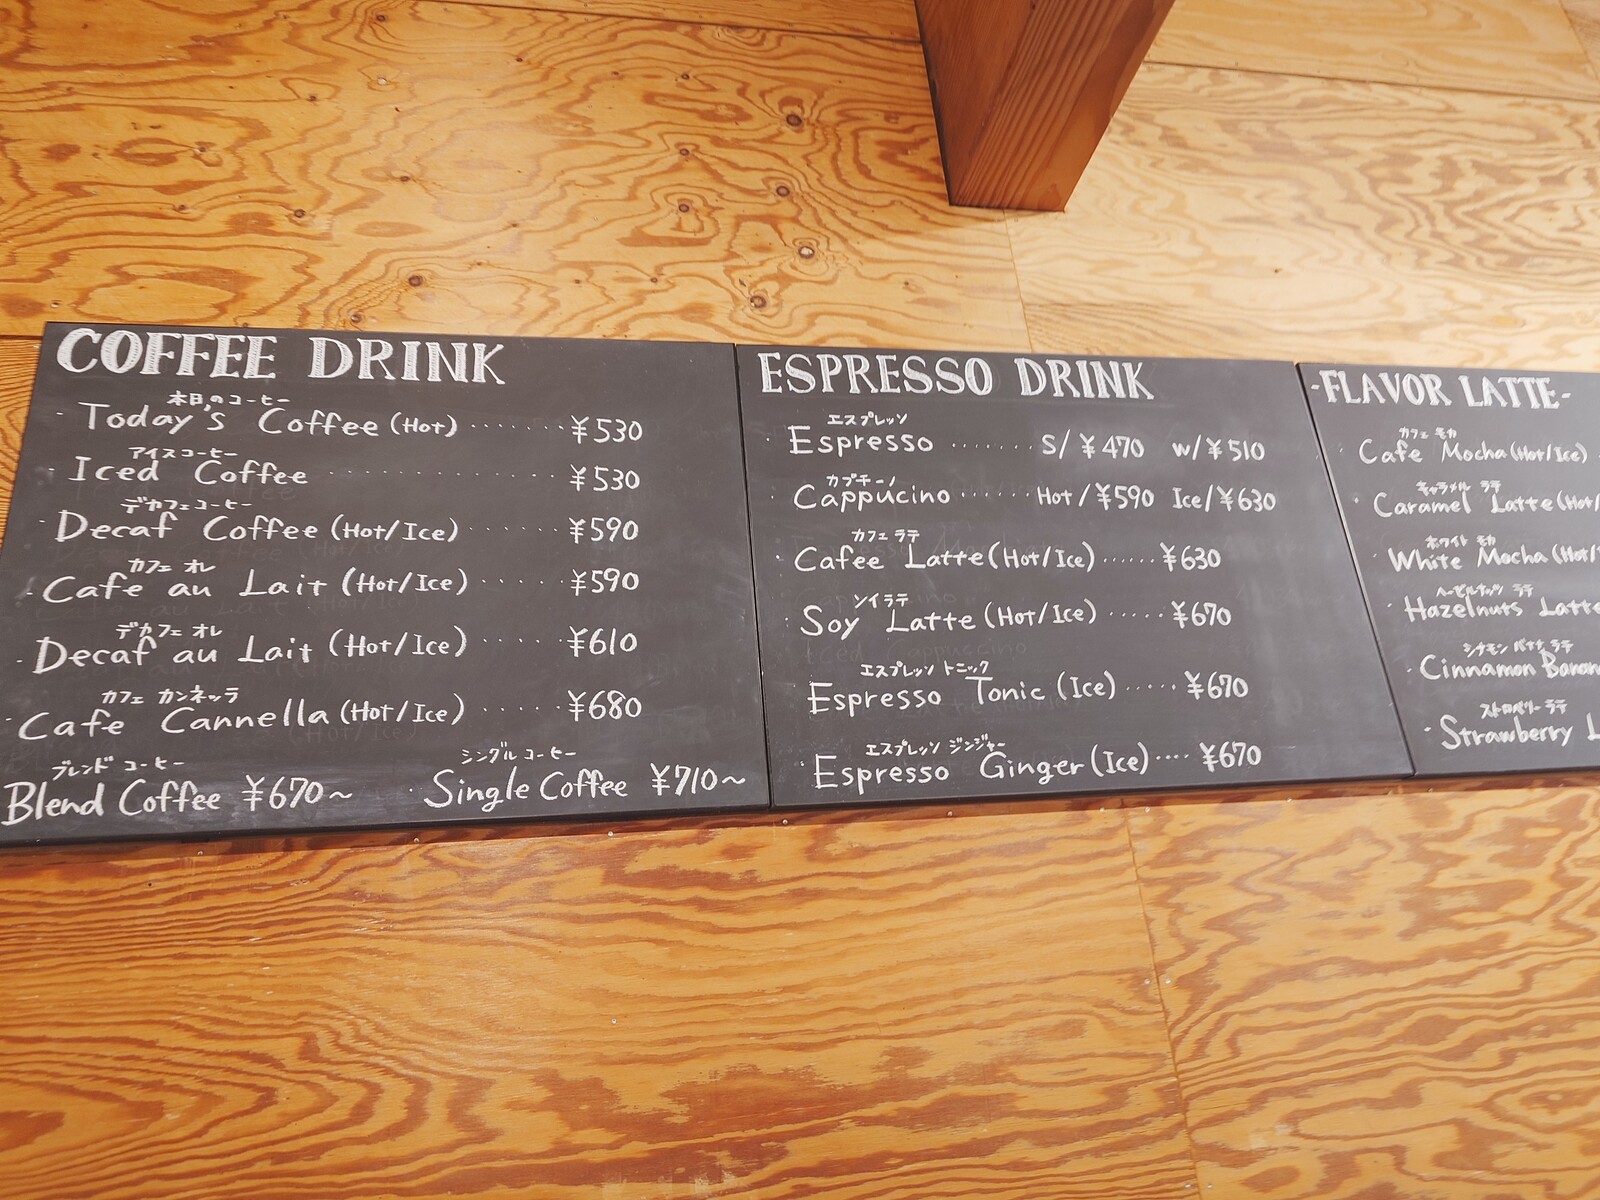 COFFEE DRINK
本日のコーヒー
· Today's Coffee (Hot) ······· ¥530
アイスコーヒー
· Iced Coffee ············ ¥530
デカフェコーヒー
· Decaf Coffee (Hot/Ice) ····· ¥590
カフェ オレ
· Cafe au Lait (Hot/Ice) ····· ¥590
デカフェ オレ
· Decaf au Lait (Hot/Ice) ····· ¥610
カフェ カンネッラ
· Cafe Cannella (Hot/Ice) ····· ¥680
ブレンド コーヒー
Blend Coffee ¥670~
シングル コーヒー
· Single Coffee ¥710~
ESPRESSO DRINK
エスプレッソ
· Espresso ······· S/¥470 W/¥510
カプチーノ
· Cappucino ······ Hot/¥590 Ice/¥630
カフェ ラテ
· Cafee Latte (Hot/Ice) ······ ¥630
ソイラテ
· Soy Latte (Hot/Ice) ····· ¥670
エスプレッソ トニック
· Espresso Tonic (Ice) ····· ¥670
エスプレッソ ジンジャー
· Espresso Ginger (Ice) ···· ¥670
-FLAVOR LATTE-
カフェ モカ
· Cafe Mocha (Hot/Ice)
キャラメル ラテ
· Caramel Latte (Hot/
ホワイト モカ
· White Mocha (Hot/
ヘーゼルナッツ ラテ
· Hazelnuts Latte
シナモン バナナ ラテ
· Cinnamon Banan
ストロベリー ラテ
· Strawberry L